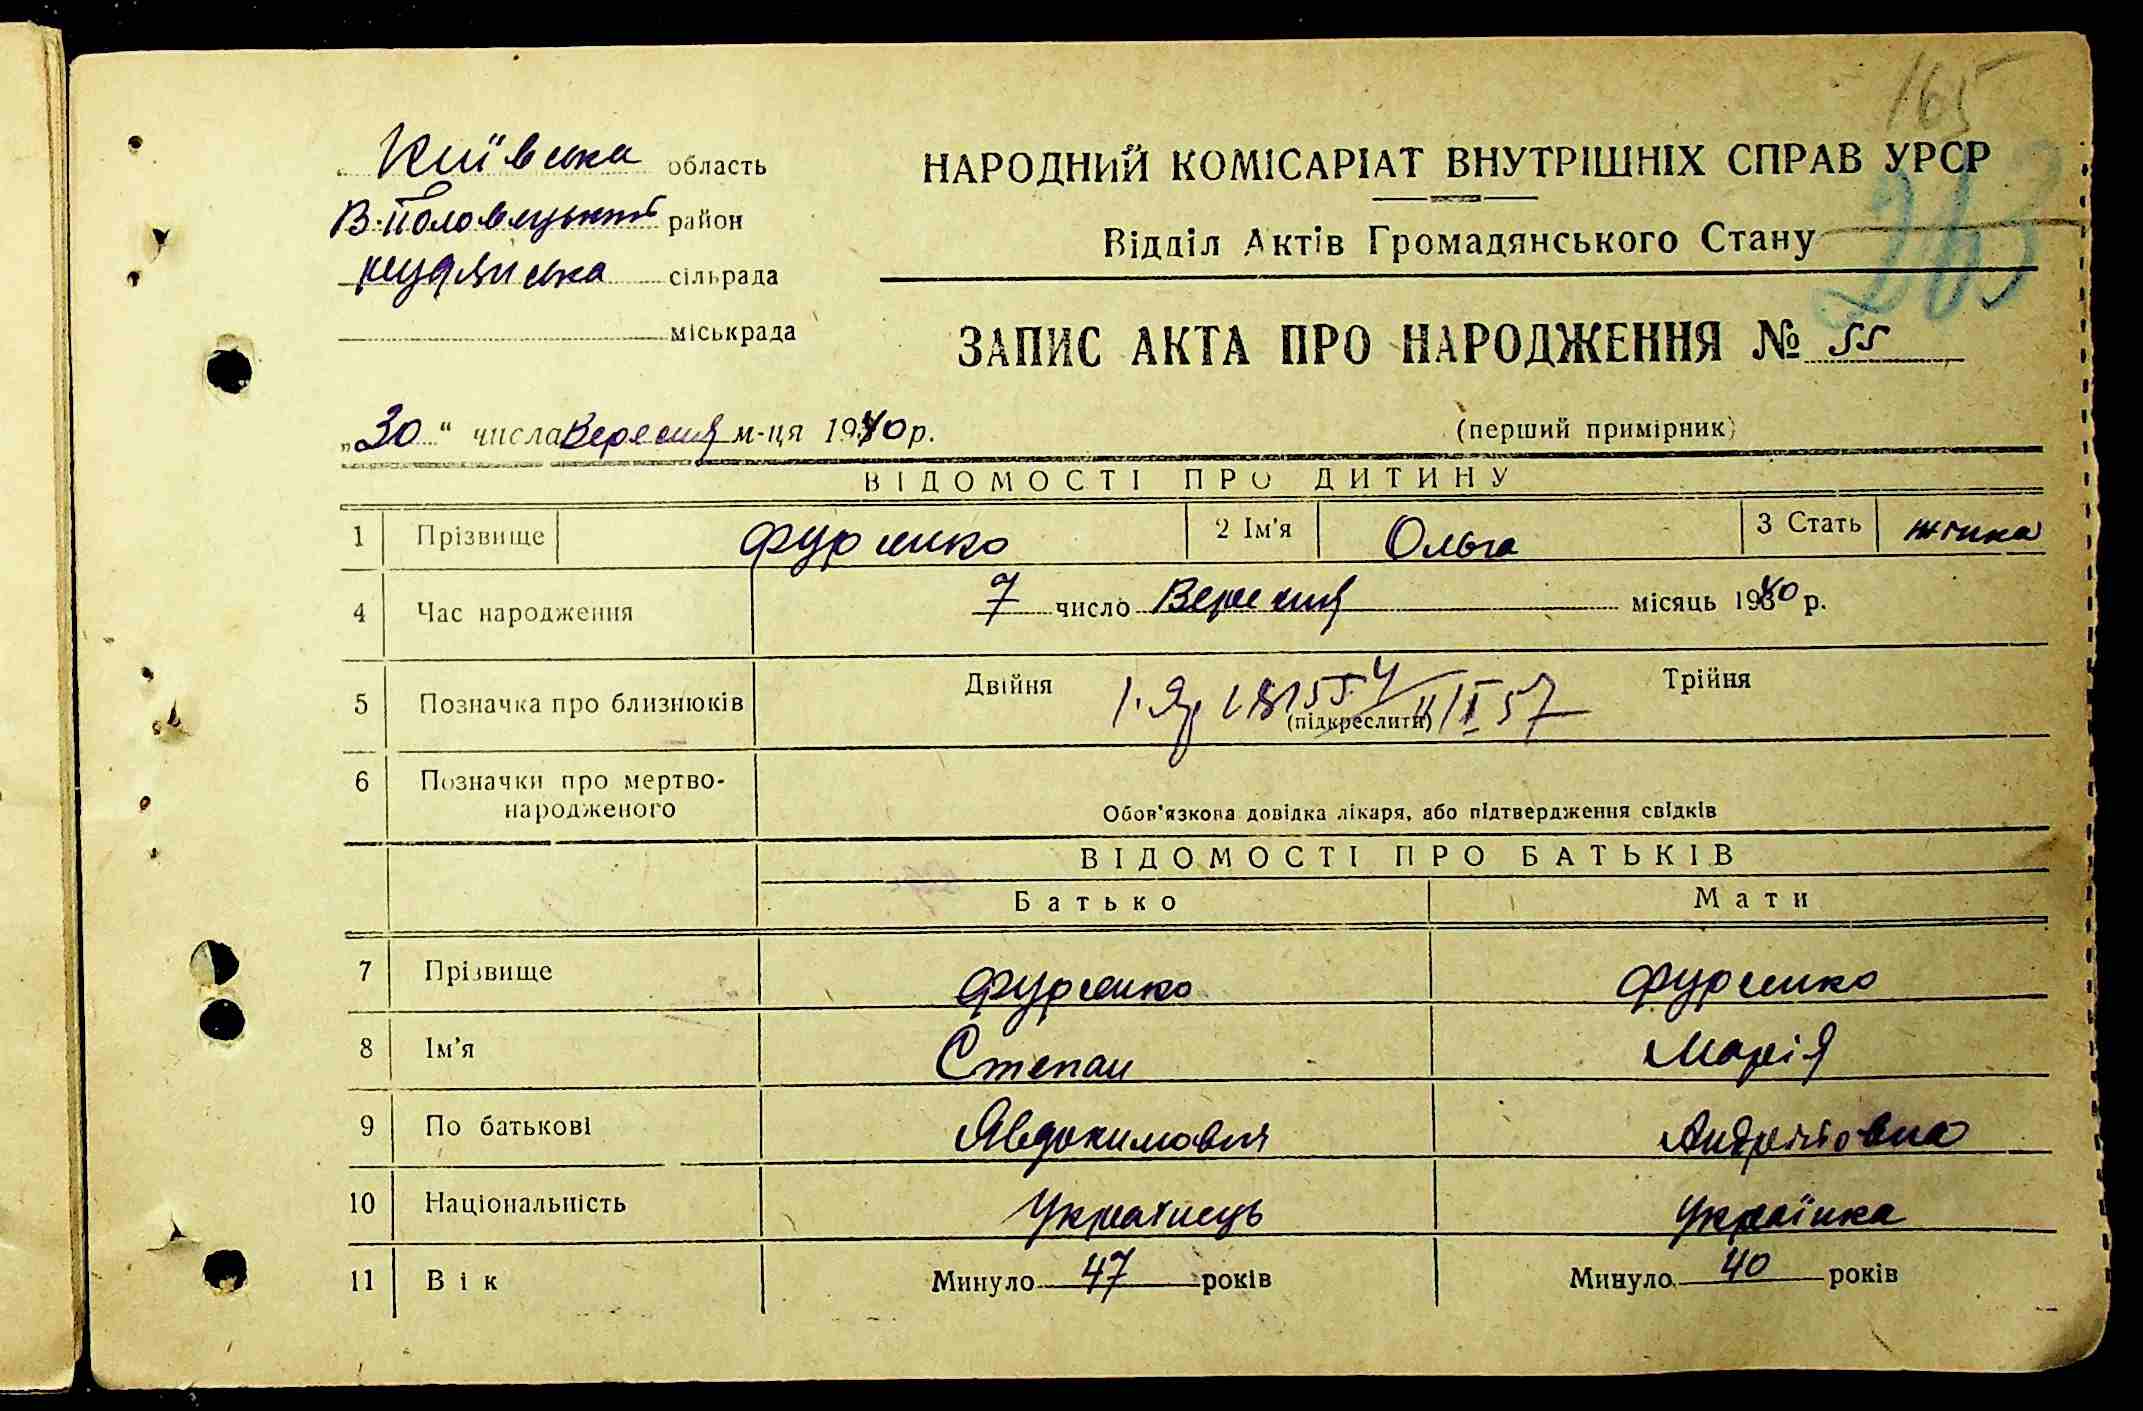 165
263
Київська область
В-Половецький район
сільрада
міськрада
НАРОДНИЙ КОМІСАРІАТ ВНУТРІШНІХ СПРАВ УРСР
Відділ Актів Громадянського Стану
ЗАПИС АКТА ПРО НАРОДЖЕННЯ № 55
„30“ числа Вересня м-ця 1940 р.
(перший примірник)
ВІДОМОСТІ ПРО ДИТИНУ
1 Прізвище Фурсенко 2 Ім'я Ольга 3 Стать жінка
4 Час народження 7 число Вересня місяць 1940 р.
5 Позначка про близнюків Двійня (підкреслити) Трійня
6 Позначки про мертво-
народженого
Обов'язкова довідка лікаря, або підтвердження свідків
ВІДОМОСТІ ПРО БАТЬКІВ
Батько Мати
7 Прізвище Фурсенко Фурсенко
8 Ім'я Степан Марія
9 По батькові Явдокимович Андріївна
10 Національність Українець Українка
11 Вік Минуло 47 років Минуло 40 років